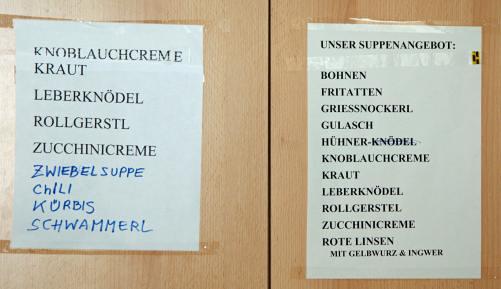 KNOBLAUCHCREME
KRAUT
LEBERKNÖDEL
ROLLGERSTL
ZUCCHINICREME
ZWIEBELSUPPE
CHILI
KÜRBIS
SCHWAMMERL
UNSER SUPPENANGEBOT:
BOHNEN
FRITATTEN
GRIESSNOCKERL
GULASCH
HÜHNER-KNÖDEL
KNOBLAUCHCREME
KRAUT
LEBERKNÖDEL
ROLLGERSTEL
ZUCCHINICREME
ROTE LINSEN
MIT GELBWURZ & INGWER